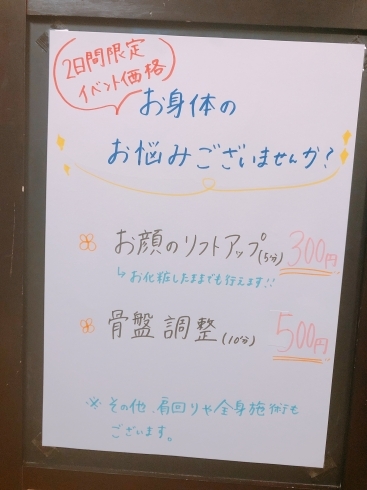 2日間限定
イベント価格
お身体の
お悩みございませんか?
お顔のリフトアップ(5分) 300円
↳お化粧したままでも行えます!!
骨盤調整(10分) 500円
※その他、肩回りや全身施術も
ございます。